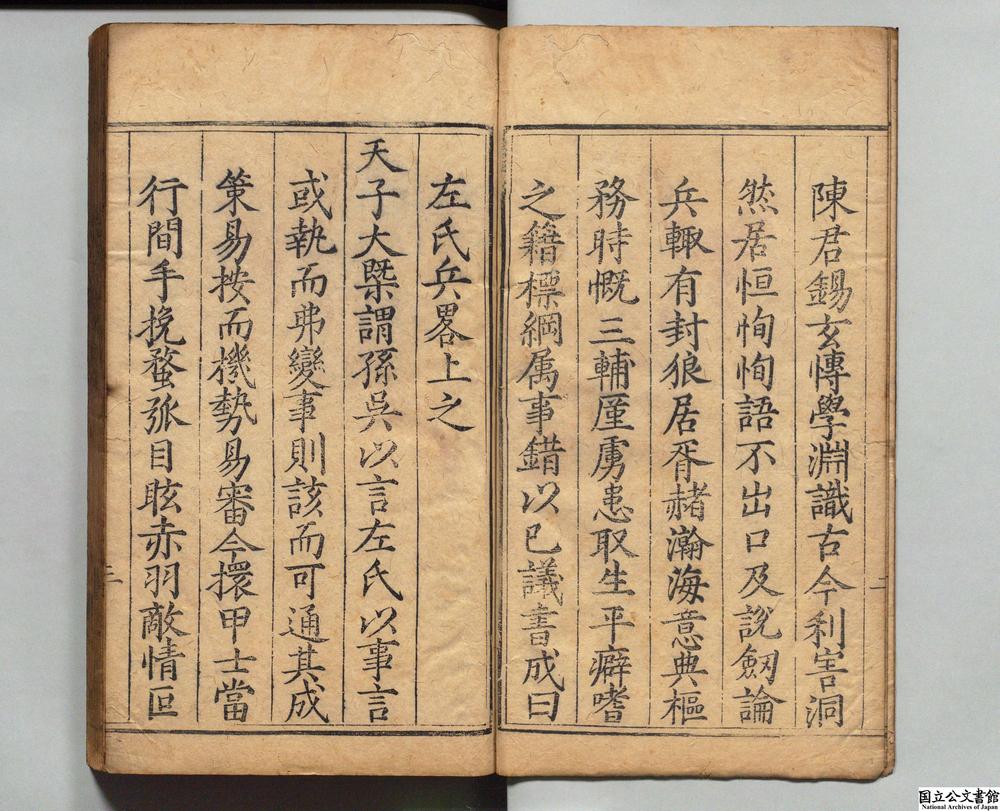 陳君錫玄慱學淵識古今利害洞
然居恒恂恂語不出口及說劔論
兵輙有封狼居胥赭瀚海意典樞
務時慨三輔厪虜患取生平癖嗜
之籍標綱属事錯以已議書成曰
左氏兵畧上之
天子大槩謂孫吳以言左氏以事言
或執而弗變事則該而可通其成
策易按而機勢易審今擐甲士當
行間手挽蝥弧目眩赤羽敵情叵
一
二
国立公文書館
National Archives of Japan